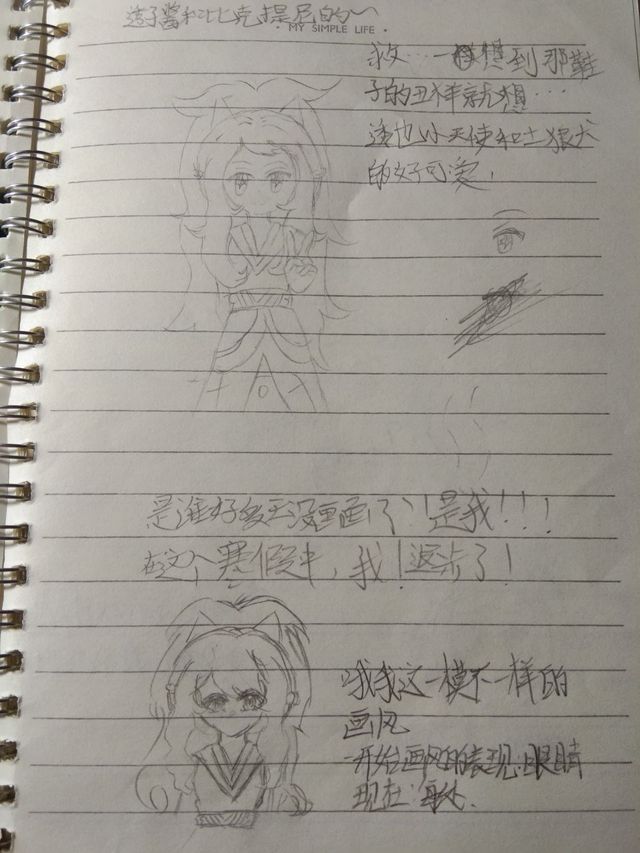 莲子酱和比克提尼的～
· MY SIMPLE LIFE ·
救…一想到那鞋
子的丑样就想…
这也小天使和土狼犬
的好可爱，
是谁好多天没画画了！是我！！！
在这个寒假中，我！返步了！
哦我这一模不一样的
画风
一开始画风的表现，眼睛
现在